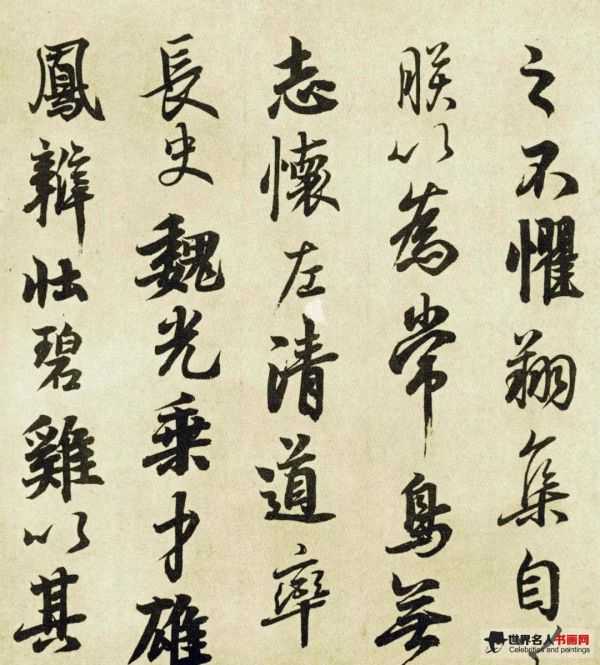 之不懼翔集自
朕以為常鳥無
志懷左清道率
長史魏光乘才雄
鳳辯壯碧雞以其
世界名人书画网
Celebrities and paintings